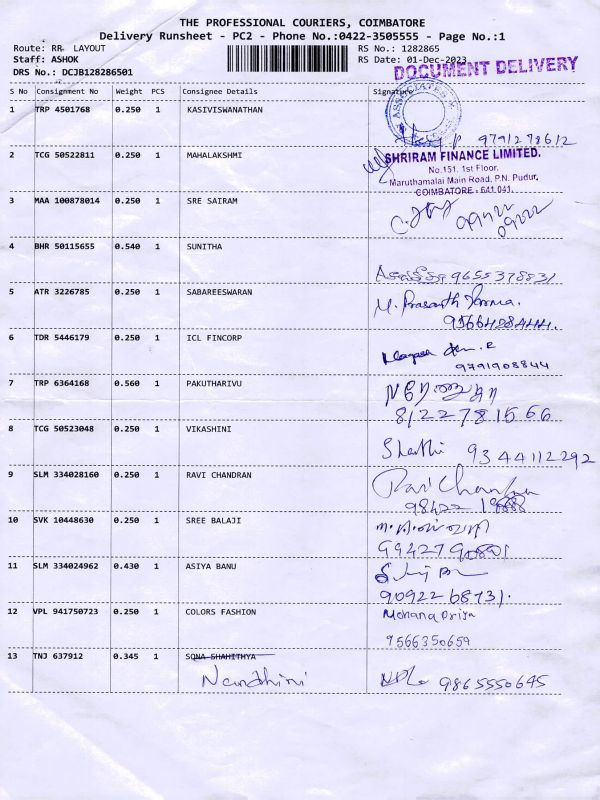 THE PROFESSIONAL COURIERS, COIMBATORE
Delivery Runsheet - PC2 - Phone No.:0422-3505555 - Page No.:1
Route: RR LAYOUT
RS No.: 1282865
Staff: ASHOK
RS Date: 01-Dec-2023
DRS No.: DCJB128286501
DOCUMENT DELIVERY
S No Consignment No Weight PCS Consignee Details Signature
1 TRP 4501768 0.250 1 KASIVISWANATHAN
ASSOCIATES
9791278612
2 TCG 50522811 0.250 1 MAHALAKSHMI
SHRIRAM FINANCE LIMITED.
No.151, 1st Floor,
Maruthamalai Main Road, P.N. Pudur,
COIMBATORE - 641 041.
3 MAA 100878014 0.250 1 SRE SAIRAM
09422
09222
4 BHR 50115655 0.540 1 SUNITHA
9655378831
5 ATR 3226785 0.250 1 SABAREESWARAN
M. Prasanth
6 TDR 5446179 0.250 1 ICL FINCORP
9791908844
7 TRP 6364168 0.560 1 PAKUTHARIVU
8122781566
8 TCG 50523048 0.250 1 VIKASHINI
Shanthi 9344112292
9 SLM 334028160 0.250 1 RAVI CHANDRAN
Ravi Chandran
98422
10 SVK 10448630 0.250 1 SREE BALAJI
11 SLM 334024962 0.430 1 ASIYA BANU
9092268731.
12 VPL 941750723 0.250 1 COLORS FASHION
Mohana Priya
9566350659
13 TNJ 637912 0.345 1 SONA SHAHITHYA
Nandhini 9865550645